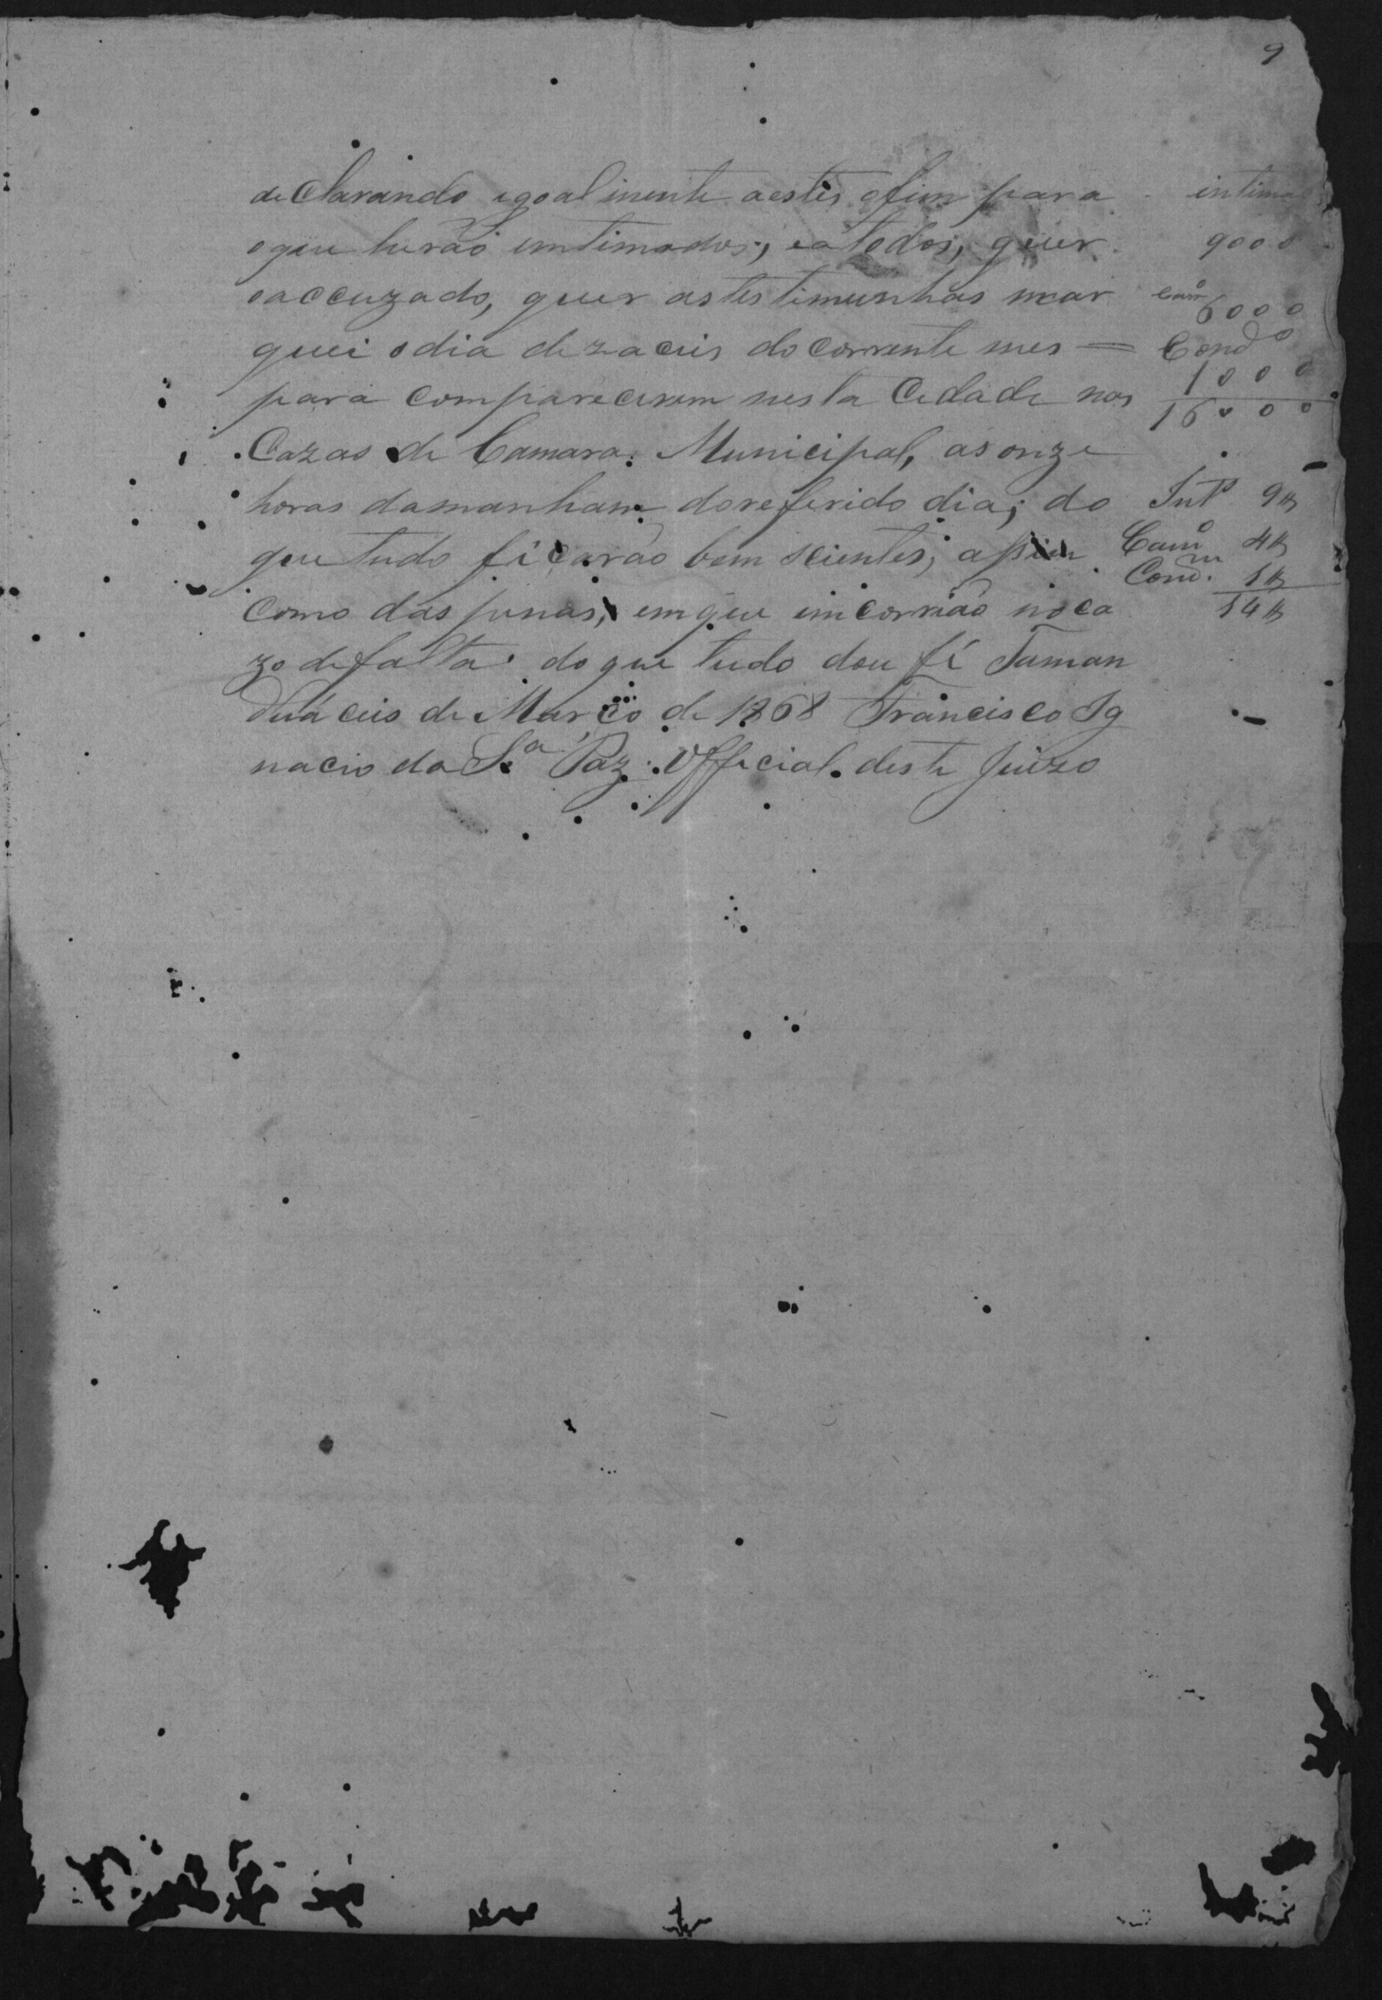 9
declarando egoalmente aestes ofim para
oque herão emtimados; eatodos, quer
oaccuzado, quer astestimunhas mar
quei odia dezaceis docorrente mes =
para comparecerem nesta Cidade nas
Cazas de Camara Municipal, asonze
horas damanham doreferido dia; do
que tudo ficarão bem scientes; assim
como das penas, emque emcorrião noca
zo defalta doque tudo dou fé Taman
duá ceis de Março de 1868 Francisco Ig
nacio da S.ª Paz Official deste Juizo
intima
9000
Camº
6000
Condº
1000
16000
Intº 9$
Camº 4$
Cond. 1$
14$